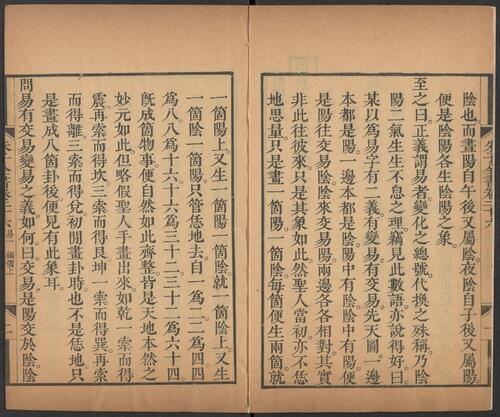 陰也而晝陽自午後又屬陰夜陰自子後又屬陽
便是陰陽各生陰陽之象
至之曰正義謂易者變化之總號代換之殊稱乃陰
陽二氣生生不息之理竊見此數語亦說得好曰
某以爲易字有二義有變易有交易先天圖一邊
本都是陽一邊本都是陰陽中有陰陰中有陽便
是陽往交易陰陰來交易陽兩邊各各相對其實
非此往彼來只是其象如此然聖人當初亦不恁
地思量只是畫一箇陽一箇陰每箇便生兩箇就
一箇陽上又生一箇陽一箇陰就一箇陰上又生
一箇陰一箇陽只管恁地去自一爲二二爲四四
爲八八爲十六十六爲三十二三十二爲六十四
旣成箇物事便自然如此齊整皆是天地本然之
妙元如此但略假聖人手畫出來如乾一索而得
震再索而得坎三索而得艮坤一索而得巽再索
而得離三索而得兌初閒畫卦時也不是恁地只
是畫成八箇卦後便見有此象耳
問易有交易變易之義如何曰交易是陽交於陰陰